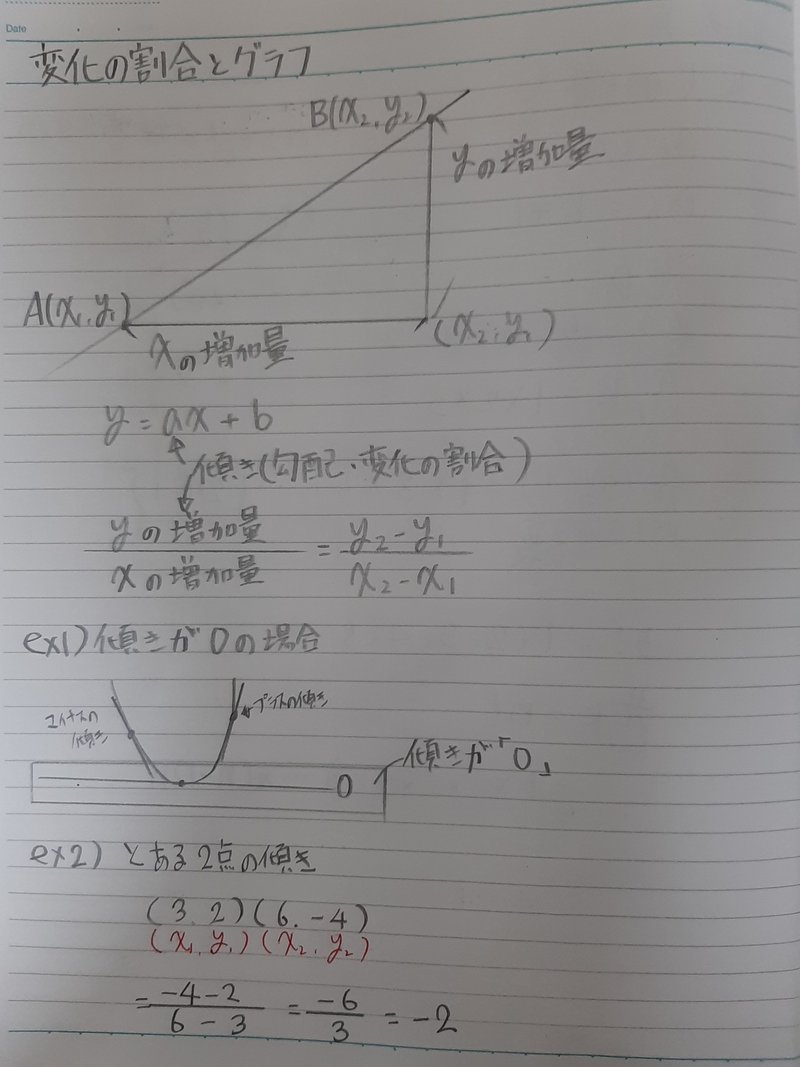 Date
変化の割合とグラフ
B(x₂, y₂)
yの増加量
A(x₁, y₁)
(x₂, y₁)
xの増加量
y = ax + b
傾き(勾配、変化の割合)
yの増加量/xの増加量 = y₂-y₁/x₂-x₁
ex1) 傾きが0の場合
マイナスの
傾き
プラスの傾き
傾きが「0」
0
ex2) とある2点の傾き
(3, 2)(6, -4)
(x₁, y₁)(x₂, y₂)
= -4-2/6-3 = -6/3 = -2